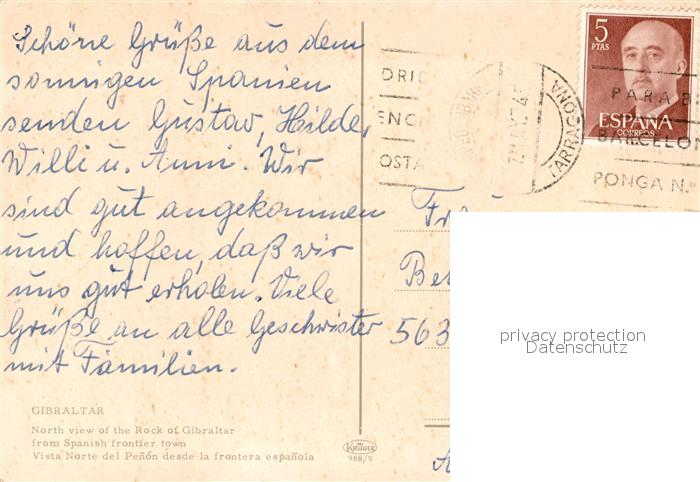 Schöne Grüße aus dem
sonnigen Spanien
senden Gustav, Hilde,
Willi u. Anni. Wir
sind gut angekommen
und hoffen, daß wir
uns gut erholen. Viele
Grüße an alle Geschwister
mit Familien.
GIBRALTAR
North view of the Rock of Gibraltar
from Spanish frontier town
Vista Norte del Peñón desde la frontera española
KRÜGER
988/9
5
PTAS
ESPAÑA
CORREOS
TARRAGONA
PARA B
BARCELON
PONGA N.º
DRID
ENC
OSTA
563
privacy protection
Datenschutz